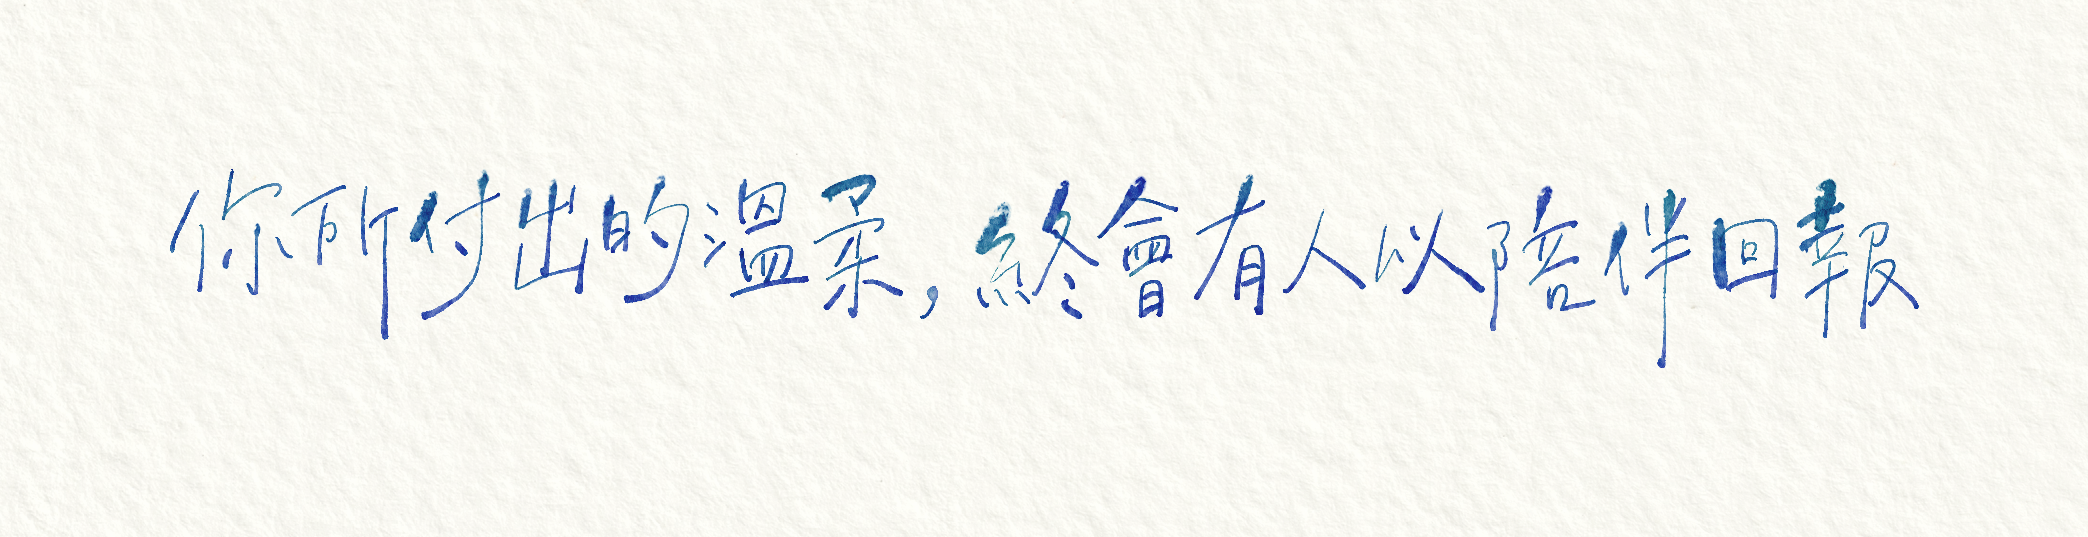 你所付出的溫柔，終會有人以陪伴回報